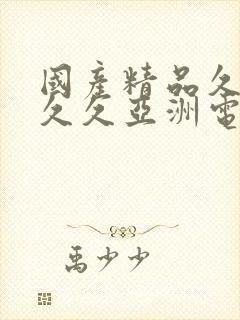 國産精品久
久久亞洲電
禹少少